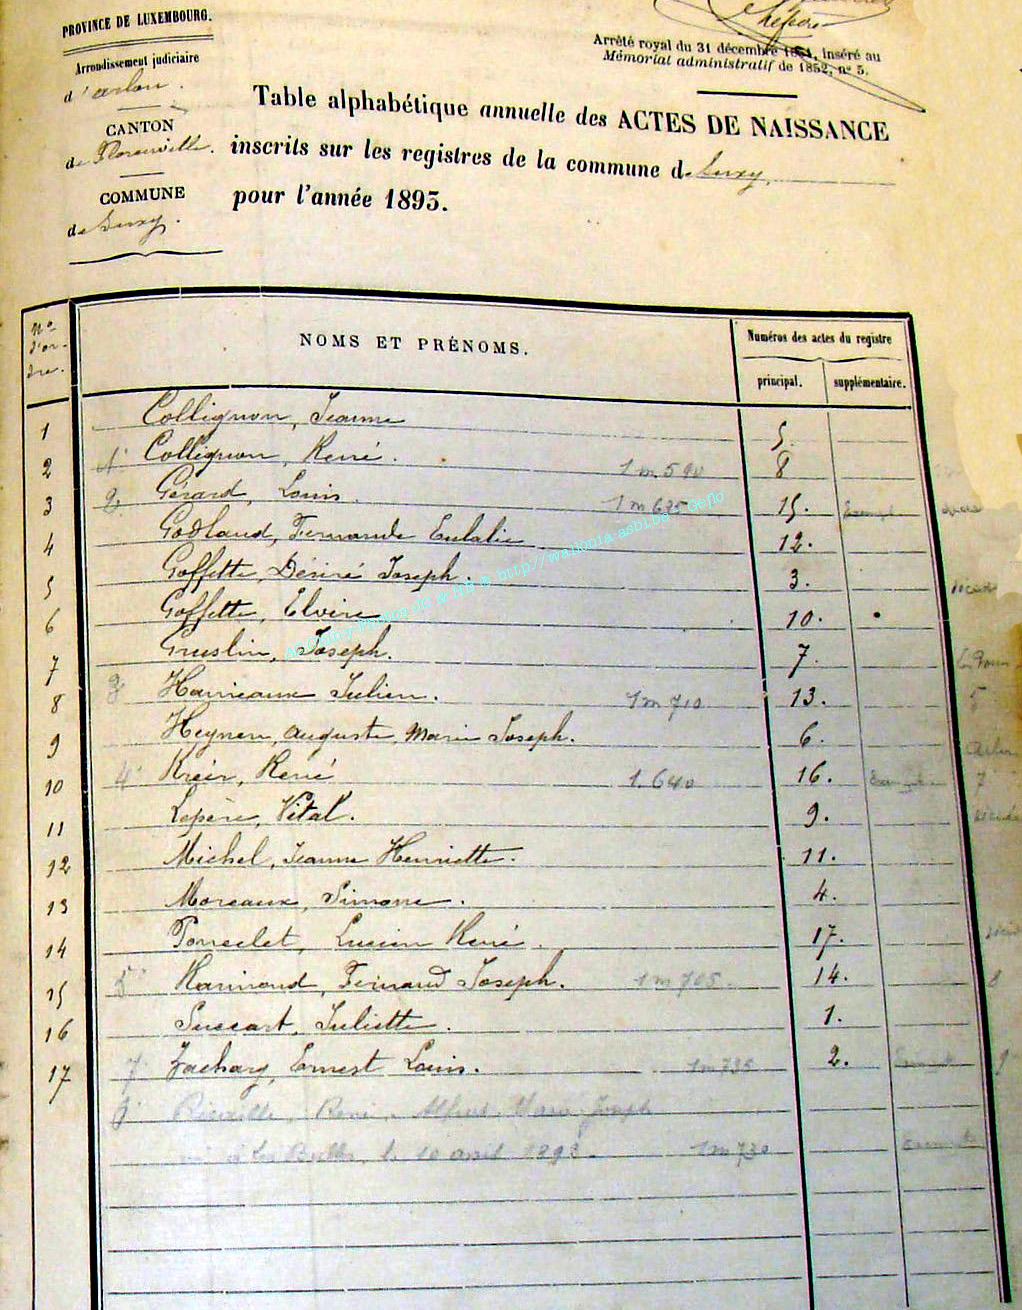 PROVINCE DE LUXEMBOURG.
Arrondissement judiciaire
d'arlon.
CANTON
de Florenville.
COMMUNE
de Suxy.
Arrêté royal du 31 décembre 1851, inséré au
Mémorial administratif de 1852, nº 5.
Table alphabétique annuelle des ACTES DE NAISSANCE
inscrits sur les registres de la commune de Suxy.
pour l'année 1893.
Nº d'ordre. NOMS ET PRÉNOMS. Numéros des actes du registre
principal. supplémentaire.
1 Collignon, Jeanne 5.
2 1. Collignon, René. 1 m 590 8
3 2 Gérard, Louis 1 m 625 15.
4 Godlaud, Fernande Eulalie 12.
5 Goffette, Désiré Joseph. 3.
6 Goffette, Elvire 10.
7 Gruslin, Joseph. 7.
8 3 Hanieaux Julien. 1 m 710 13.
9 Heynen, Auguste, Marie Joseph. 6.
10 4 Kreir, René 1.640 16.
11 Lepère, Vital. 9.
12 Michel, Jeanne Henriette. 11.
13 Moreaux, Simone. 4.
14 Poncelet, Lucien René. 17.
15 5 Raimond, Fernand Joseph. 1 m 705 14.
16 Succart, Juliette. 1.
17 7 Zachary, Ernest Louis. 1 m 735 2.
6 René, Alfred Joseph
le 10 avril 1893. 1 m 730
http://wallonia-asbl.be Geflo